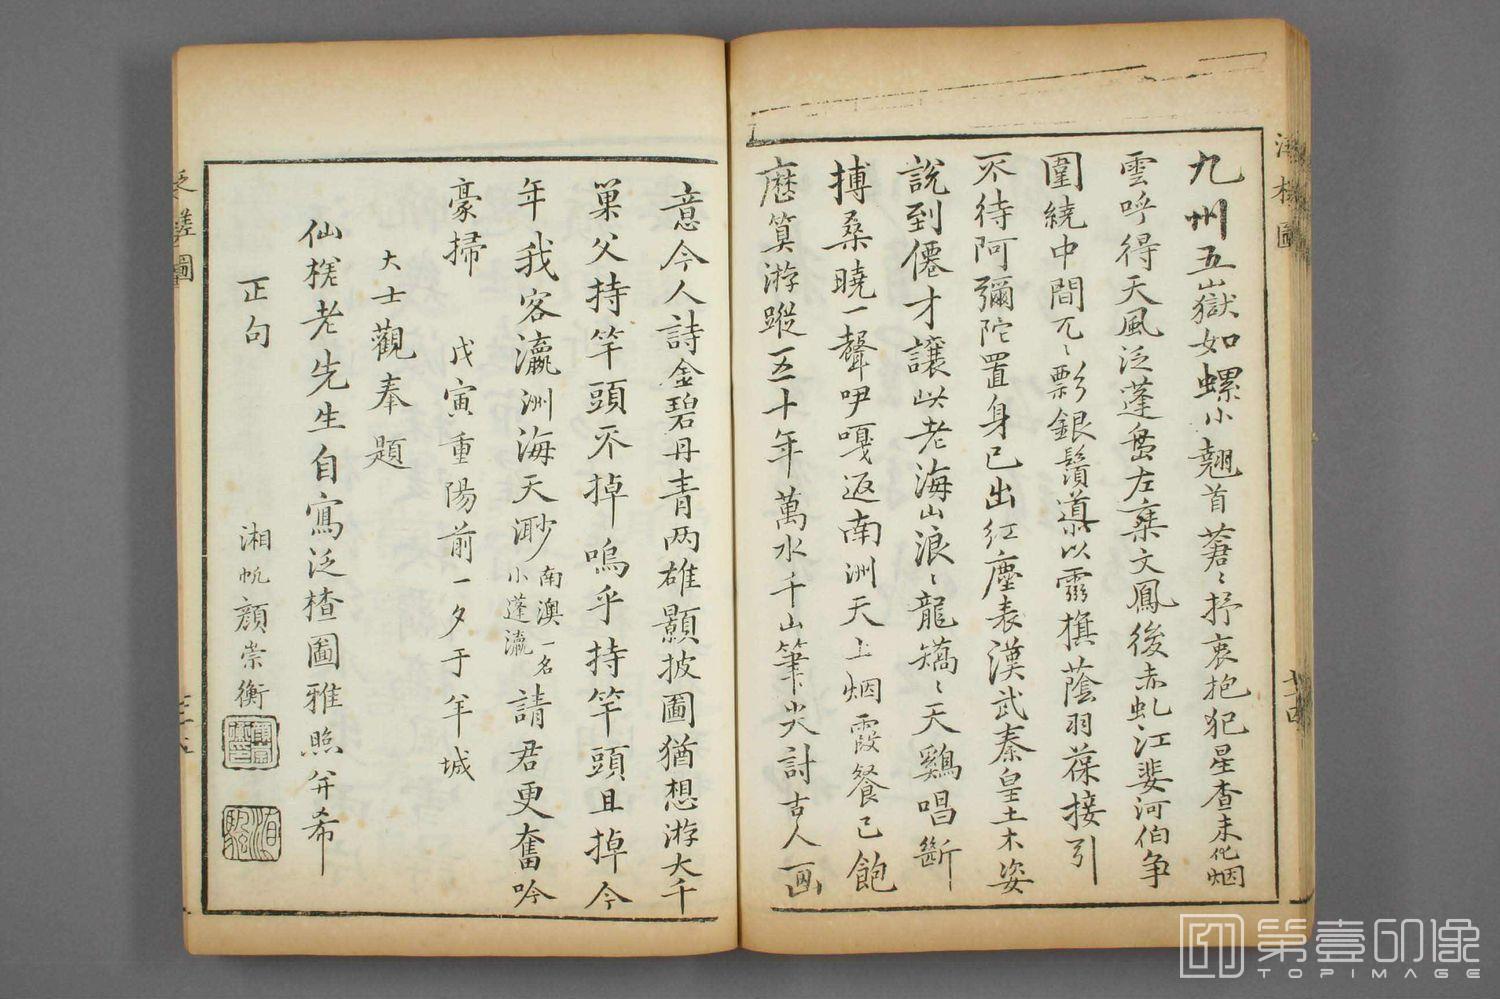 九州五嶽如螺小翹首蒼〻抒衷抱犯星查未化烟
雲呼得天風泛蓬島左棄文鳳後赤虬江婓河伯爭
圍繞中間兀〻彩銀鬚導以靈旗蔭羽葆接引
不待阿彌陀置身已出紅塵表漢武秦皇土木姿
說到僊才讓此老海山浪〻龍矯〻天鷄唱斷
搏桑曉一聲咿嘎返南洲天上烟霞餐已飽
歷算游蹤五十年萬水千山筆尖討古人画
意今人詩金碧丹青两雄顥披圖猶想游大千
巢父持竿頭不掉嗚乎持竿頭且掉今
年我客瀛洲海天渺南澳一名小蓬瀛請君更奮吟
豪掃 戊寅重陽前一夕于年城
大士觀奉題
仙槎老先生自寫泛槎圖雅照并希
正句 湘帆顔崇衡
泛槎圖
第壹印像
TOPIMAGE